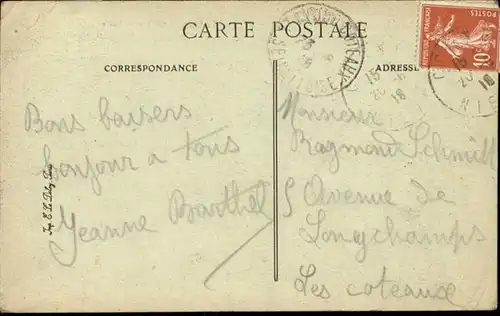 CARTE POSTALE
CORRESPONDANCE
ADRESSE
POSTES
RÉPUBLIQUE FRANÇAISE
10c
Bons baisers
bonjour a tous
Jeanne Barthel
Monsieur
Raymond Schmitt
5 Avenue de
Longchamps
Les coteaux